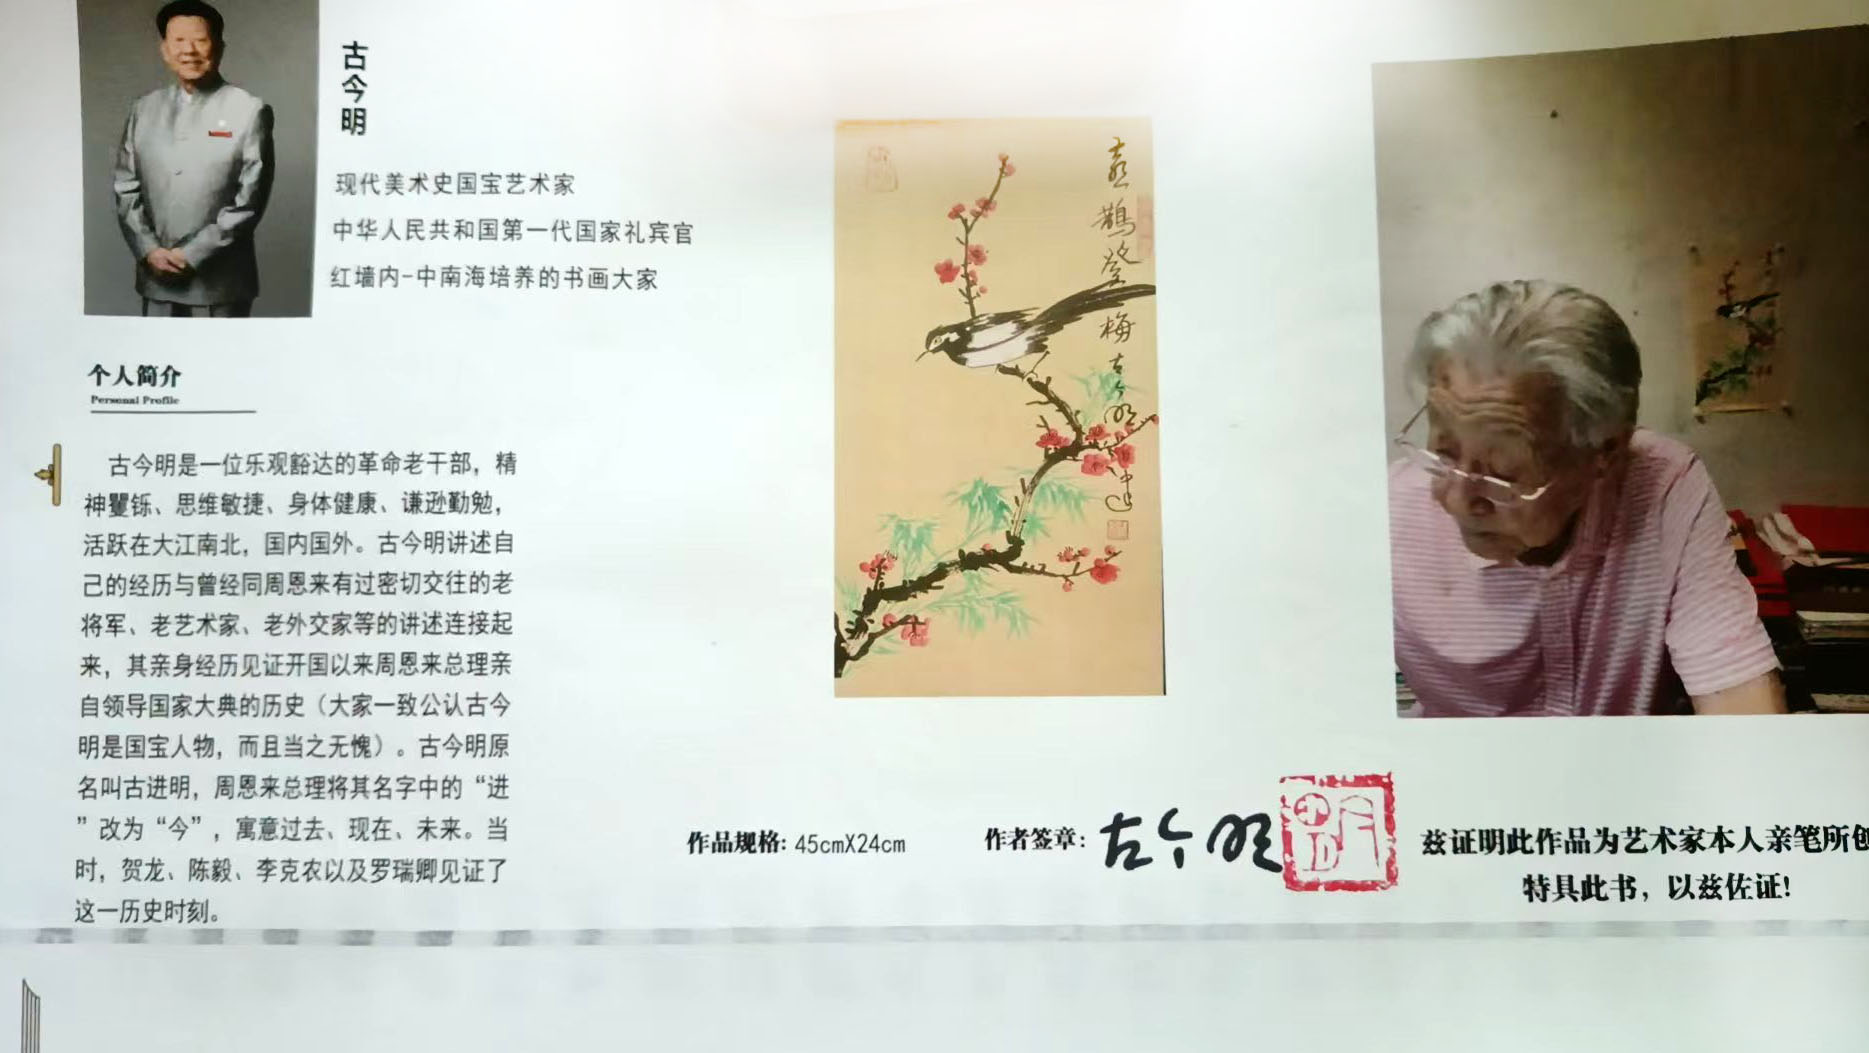 古今明
现代美术史国宝艺术家
中华人民共和国第一代国家礼宾官
红墙内-中南海培养的书画大家
个人简介
Personal Profile
古今明是一位乐观豁达的革命老干部，精
神矍铄、思维敏捷、身体健康、谦逊勤勉，
活跃在大江南北，国内国外。古今明讲述自
己的经历与曾经同周恩来有过密切交往的老
将军、老艺术家、老外交家等的讲述连接起
来，其亲身经历见证开国以来周恩来总理亲
自领导国家大典的历史（大家一致公认古今
明是国宝人物，而且当之无愧）。古今明原
名叫古进明，周恩来总理将其名字中的“进
”改为“今”，寓意过去、现在、未来。当
时，贺龙、陈毅、李克农以及罗瑞卿见证了
这一历史时刻。
喜鹊登梅 古今明
作品规格：45cmX24cm
作者签章：古今明
兹证明此作品为艺术家本人亲笔所创
特具此书，以兹佐证！